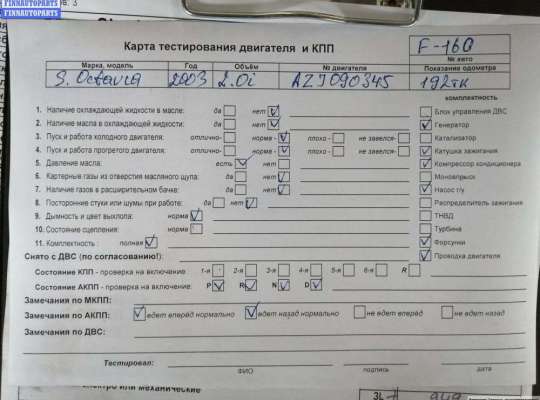 FINNAUTOPARTS
FINNAUTOPARTS
FINNAUTOPARTS
Карта тестирования двигателя и КПП
F-160
№ авто
Марка, модель Год Объём № двигателя Показание одометра
S. Octavia 2003 2.0i AZJ090345 192тк
комплектность
1. Наличие охлаждающей жидкости в масле: да нет
Блок управления ДВС
2. Наличие масла в охлаждающей жидкости: да нет
Генератор
3. Пуск и работа холодного двигателя: отлично- норма - плохо - не завелся-
Катализатор
4. Пуск и работа прогретого двигателя: отлично- норма - плохо - не завелся-
Катушка зажигания
5. Давление масла: есть нет
Компрессор кондиционера
6. Картерные газы из отверстия масляного щупа: да нет
Моновпрыск
7. Наличие газов в расширительном бачке: да нет
Насос г/у
8. Посторонние стуки или шумы при работе: да нет
Распределитель зажигания
9. Дымность и цвет выхлопа: норма
ТНВД
10. Состояние сцепления: норма
Турбина
11. Комплектность : полная
Форсунки
Снято с ДВС (по согласованию!):
Проводка двигателя
Состояние КПП - проверка на включение 1-я 2-я 3-я 4-я 5-я 6-я R
Состояние АКПП - проверка на включение: P R N D
Замечания по МКПП:
Замечания по АКПП: едет вперёд нормально едет назад нормально не едет вперед не едет назад
Замечания по ДВС:
Тестировал:
ФИО подпись дата
или механические